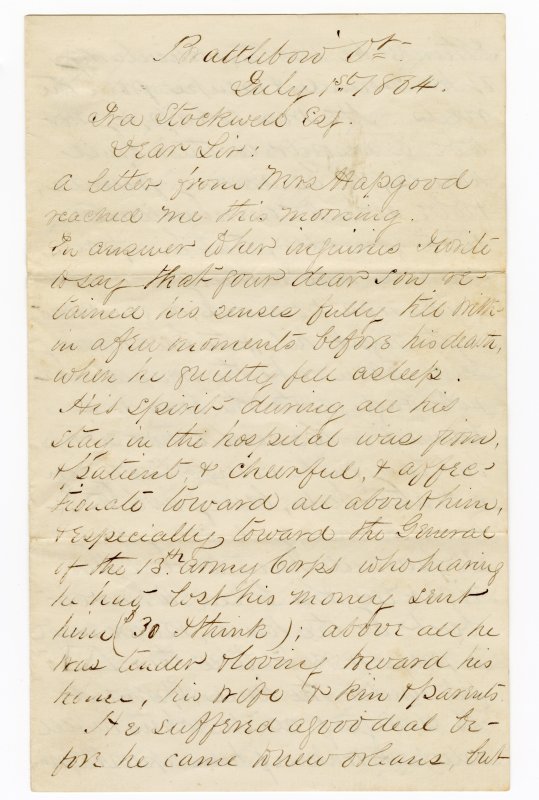 Brattleboro' Vt
July 1st 1864.
Ira Stockwell Esq.
Dear Sir:
A letter from Mrs Hapgood
reached me this morning.
In answer to her inquiries I write
to say that your dear son re-
tained his senses fully till with-
in a few moments before his death,
when he quietly fell asleep.
His spirit during all his
stay in the hospital was firm,
& patient, & cheerful, & affec-
tionate toward all about him,
& especially toward the General
of the 13th army Corps who hearing
he had lost his money sent
him ($30 I think); above all he
was tender & loving toward his
home, his wife & kin & parents
He suffered a good deal be-
fore he came to new orleans, but